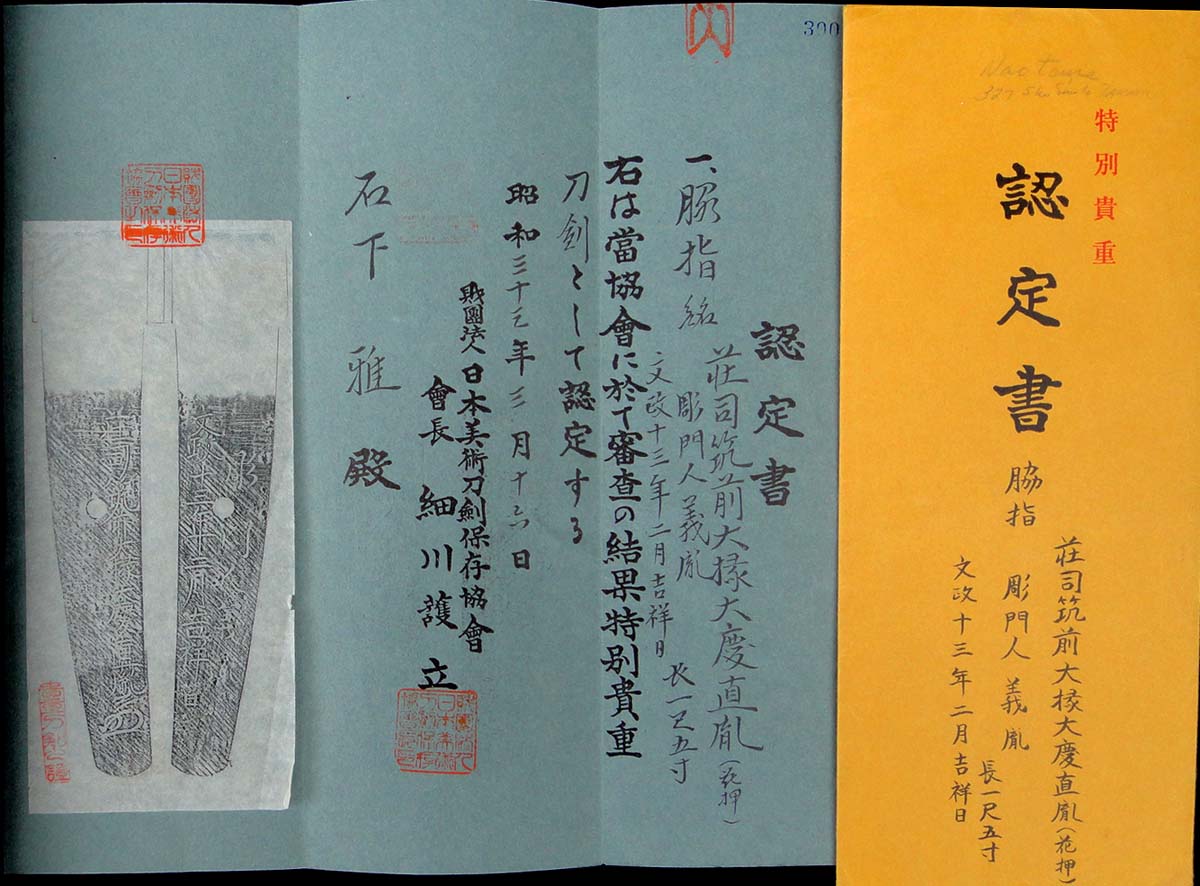 特別貴重
認定書
脇指
荘司筑前大掾大慶直胤(花押)
彫門人義胤
長一尺五寸
文政十三年二月吉祥日
390
認定書
一、脇指 銘
荘司筑前大掾大慶直胤(花押)
彫門人義胤
文政十三年二月吉祥日
長一尺五寸
右は當協會に於て審査の結果特別貴重
刀剣として認定する
昭和三十三年三月十六日
財團法人日本美術刀剣保存協會
會長 細川護立
石下 雅 殿